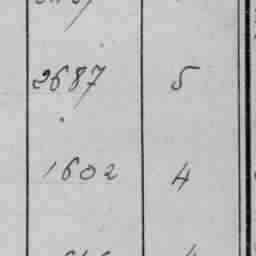 2687 5
1602 4